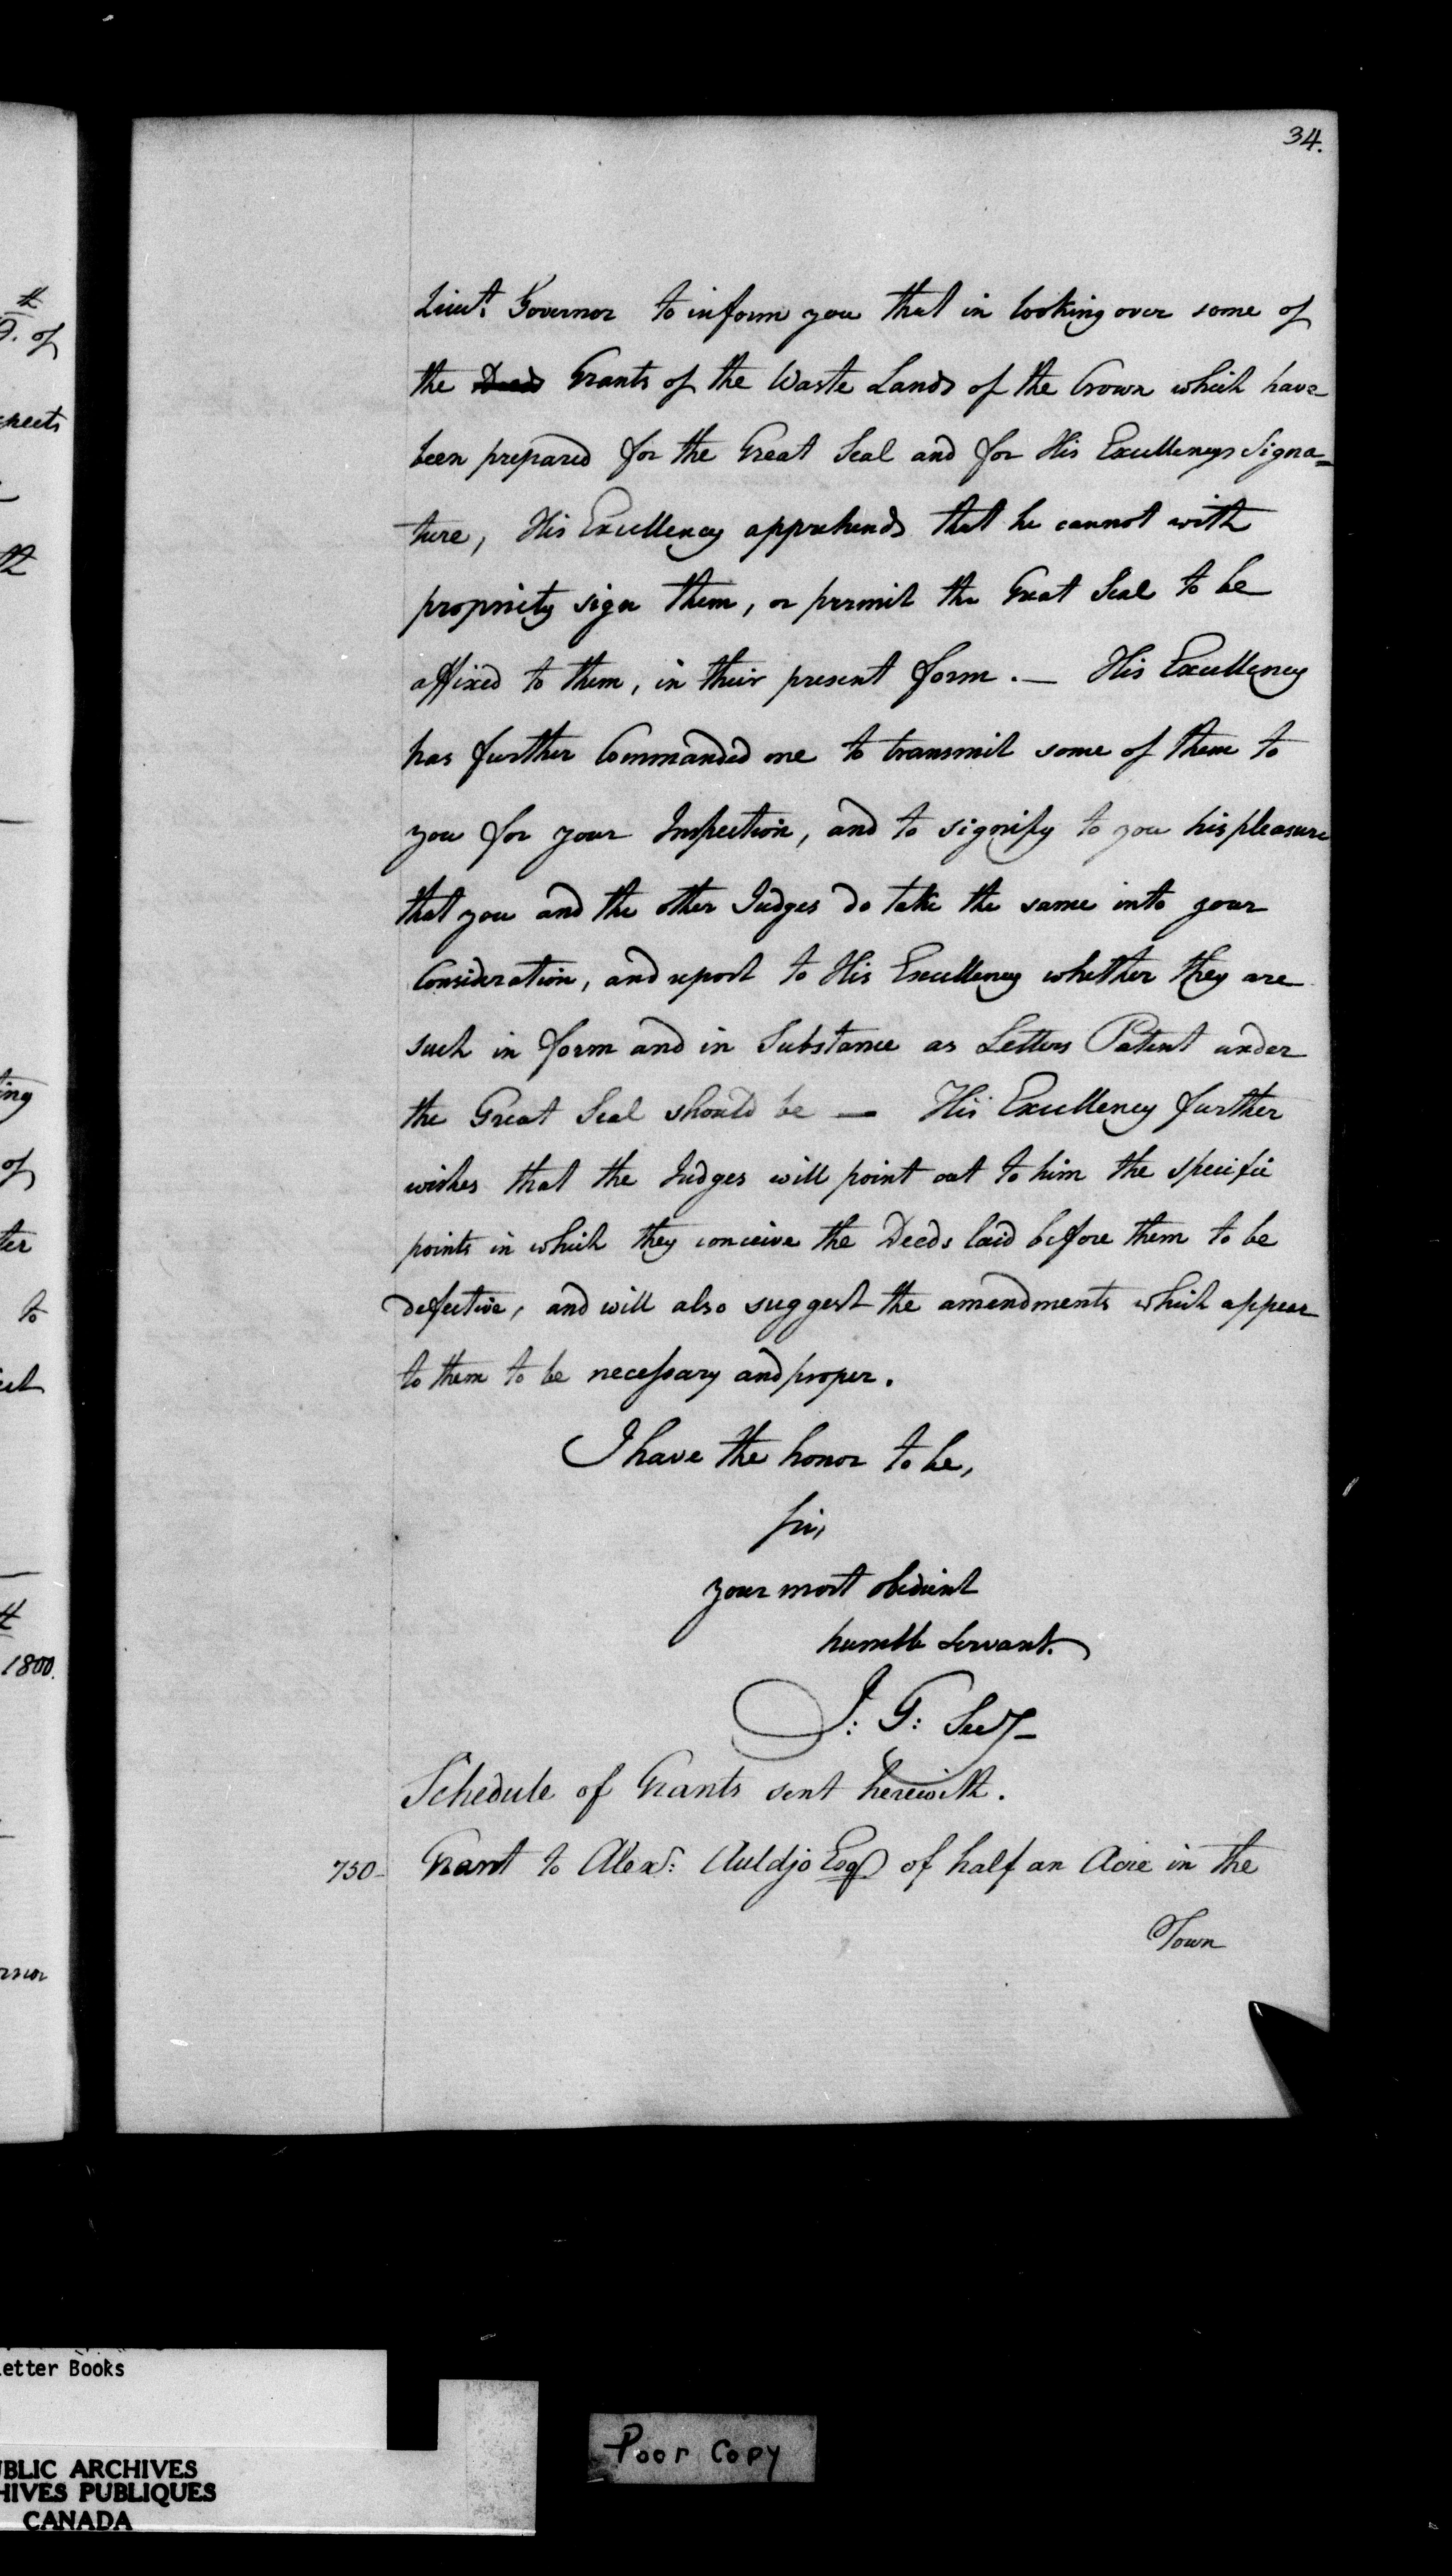 34.
Lieut. Governor to inform you that in looking over some of
the Deeds Grants of the Waste Lands of the Crown which have
been prepared for the Great Seal and for His Excellencys Signa=
ture, His Excellency apprehends that he cannot with
propriety sign them, or permit the Great Seal to be
affixed to them, in their present form. — His Excellency
has further Commanded me to transmit some of them to
you for your Inspection, and to signify to you his pleasure
that you and the other Judges do take the same into your
Consideration, and report to His Excellency whether they are
such in form and in Substance as Letters Patent under
the Great Seal should be — His Excellency further
wishes that the Judges will point out to him the specific
points in which they conceive the Deeds laid before them to be
defective, and will also suggest the amendments which appear
to them to be necessary and proper.
I have the honor to be,
Sir,
your most obedient
humble Servant.
J: G: Secy
Schedule of Grants sent herewith.
750- Grant to Alexr: Auldjo Esqr of half an Acre in the
Town
th
of
pects
th
ing
of
ter
to
1800.
etter Books
UBLIC ARCHIVES
HIVES PUBLIQUES
CANADA
Poor Copy